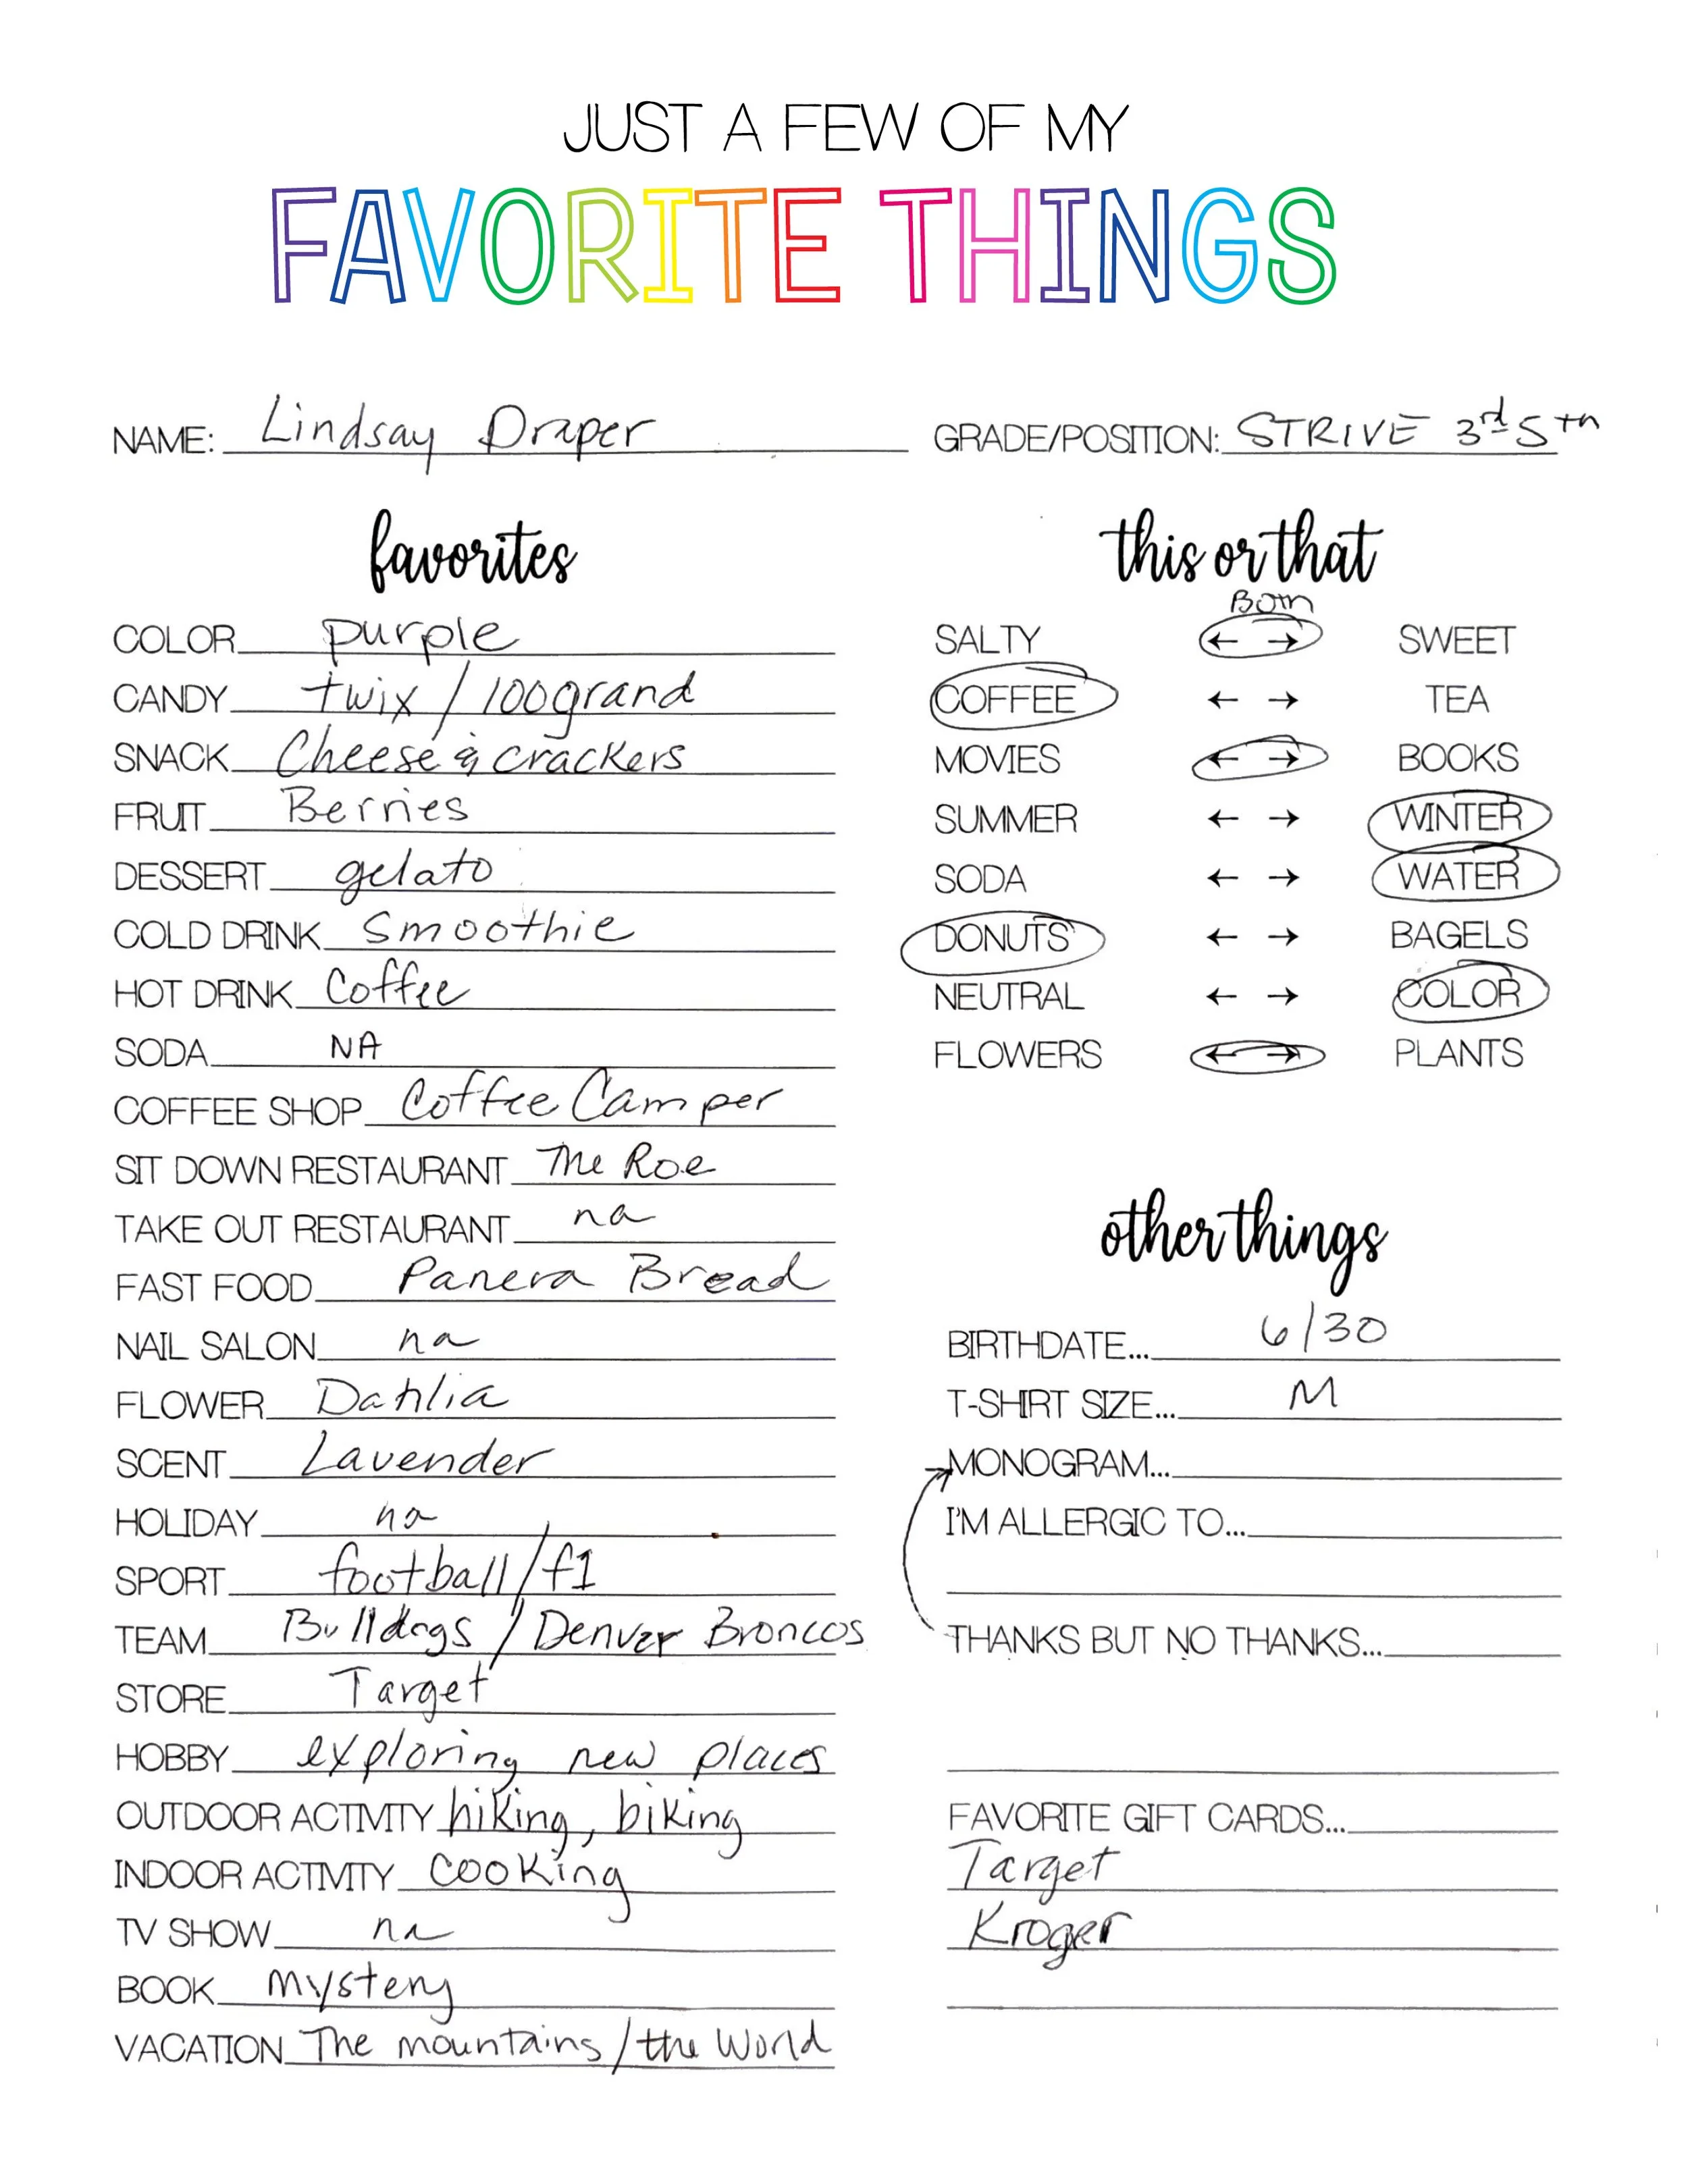 JUST A FEW OF MY
FAVORITE THINGS
NAME: Lindsay Draper
GRADE/POSITION: STRIVE 3rd 5th
favorites
COLOR purple
CANDY twix / 100grand
SNACK Cheese & crackers
FRUIT Berries
DESSERT gelato
COLD DRINK Smoothie
HOT DRINK Coffee
SODA NA
COFFEE SHOP Coffee Camper
SIT DOWN RESTAURANT The Roe
TAKE OUT RESTAURANT na
FAST FOOD Panera Bread
NAIL SALON na
FLOWER Dahlia
SCENT Lavender
HOLIDAY na
SPORT football/f1
TEAM Bulldogs / Denver Broncos
STORE Target
HOBBY exploring new places
OUTDOOR ACTIVITY hiking, biking
INDOOR ACTIVITY cooking
TV SHOW na
BOOK mystery
VACATION The mountains / the World
this or that
Both
SALTY ← → SWEET
COFFEE ← → TEA
MOVIES ← → BOOKS
SUMMER ← → WINTER
SODA ← → WATER
DONUTS ← → BAGELS
NEUTRAL ← → COLOR
FLOWERS ← → PLANTS
other things
BIRTHDATE... 6/30
T-SHIRT SIZE... M
MONOGRAM...
I'M ALLERGIC TO...
THANKS BUT NO THANKS...
FAVORITE GIFT CARDS...
Target
Kroger